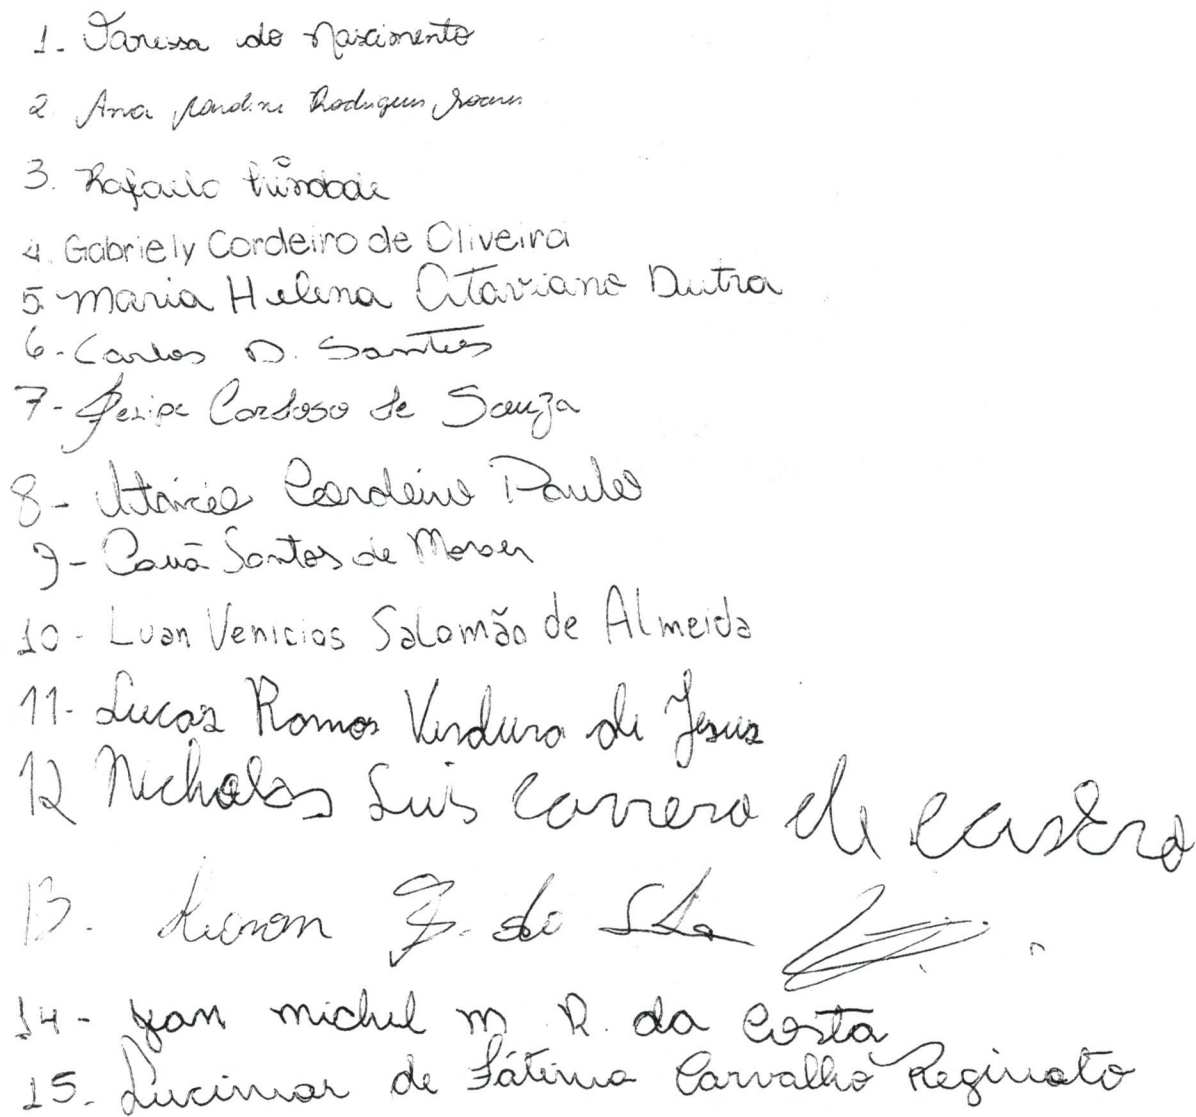 1. Vanessa do Nascimento
2. Ana Rodrigues Soares
3. Rafaela Trindade
4. Gabriely Cordeiro de Oliveira
5. Maria Helena Otaviano Dutra
6. Carlos D. Santos
7- Felipe Cardoso de Souza
8- Cordeiro Paulo
9- Cauã Santos de Moraes
10- Luan Venicios Salomão de Almeida
11- Lucas Ramos Verduro de Jesus
12 Nicholas Luis Carrero de Castro
13. da Silva
14- Jean michel m R. da Costa
15. Lucimar de Fátima Carvalho Reginato